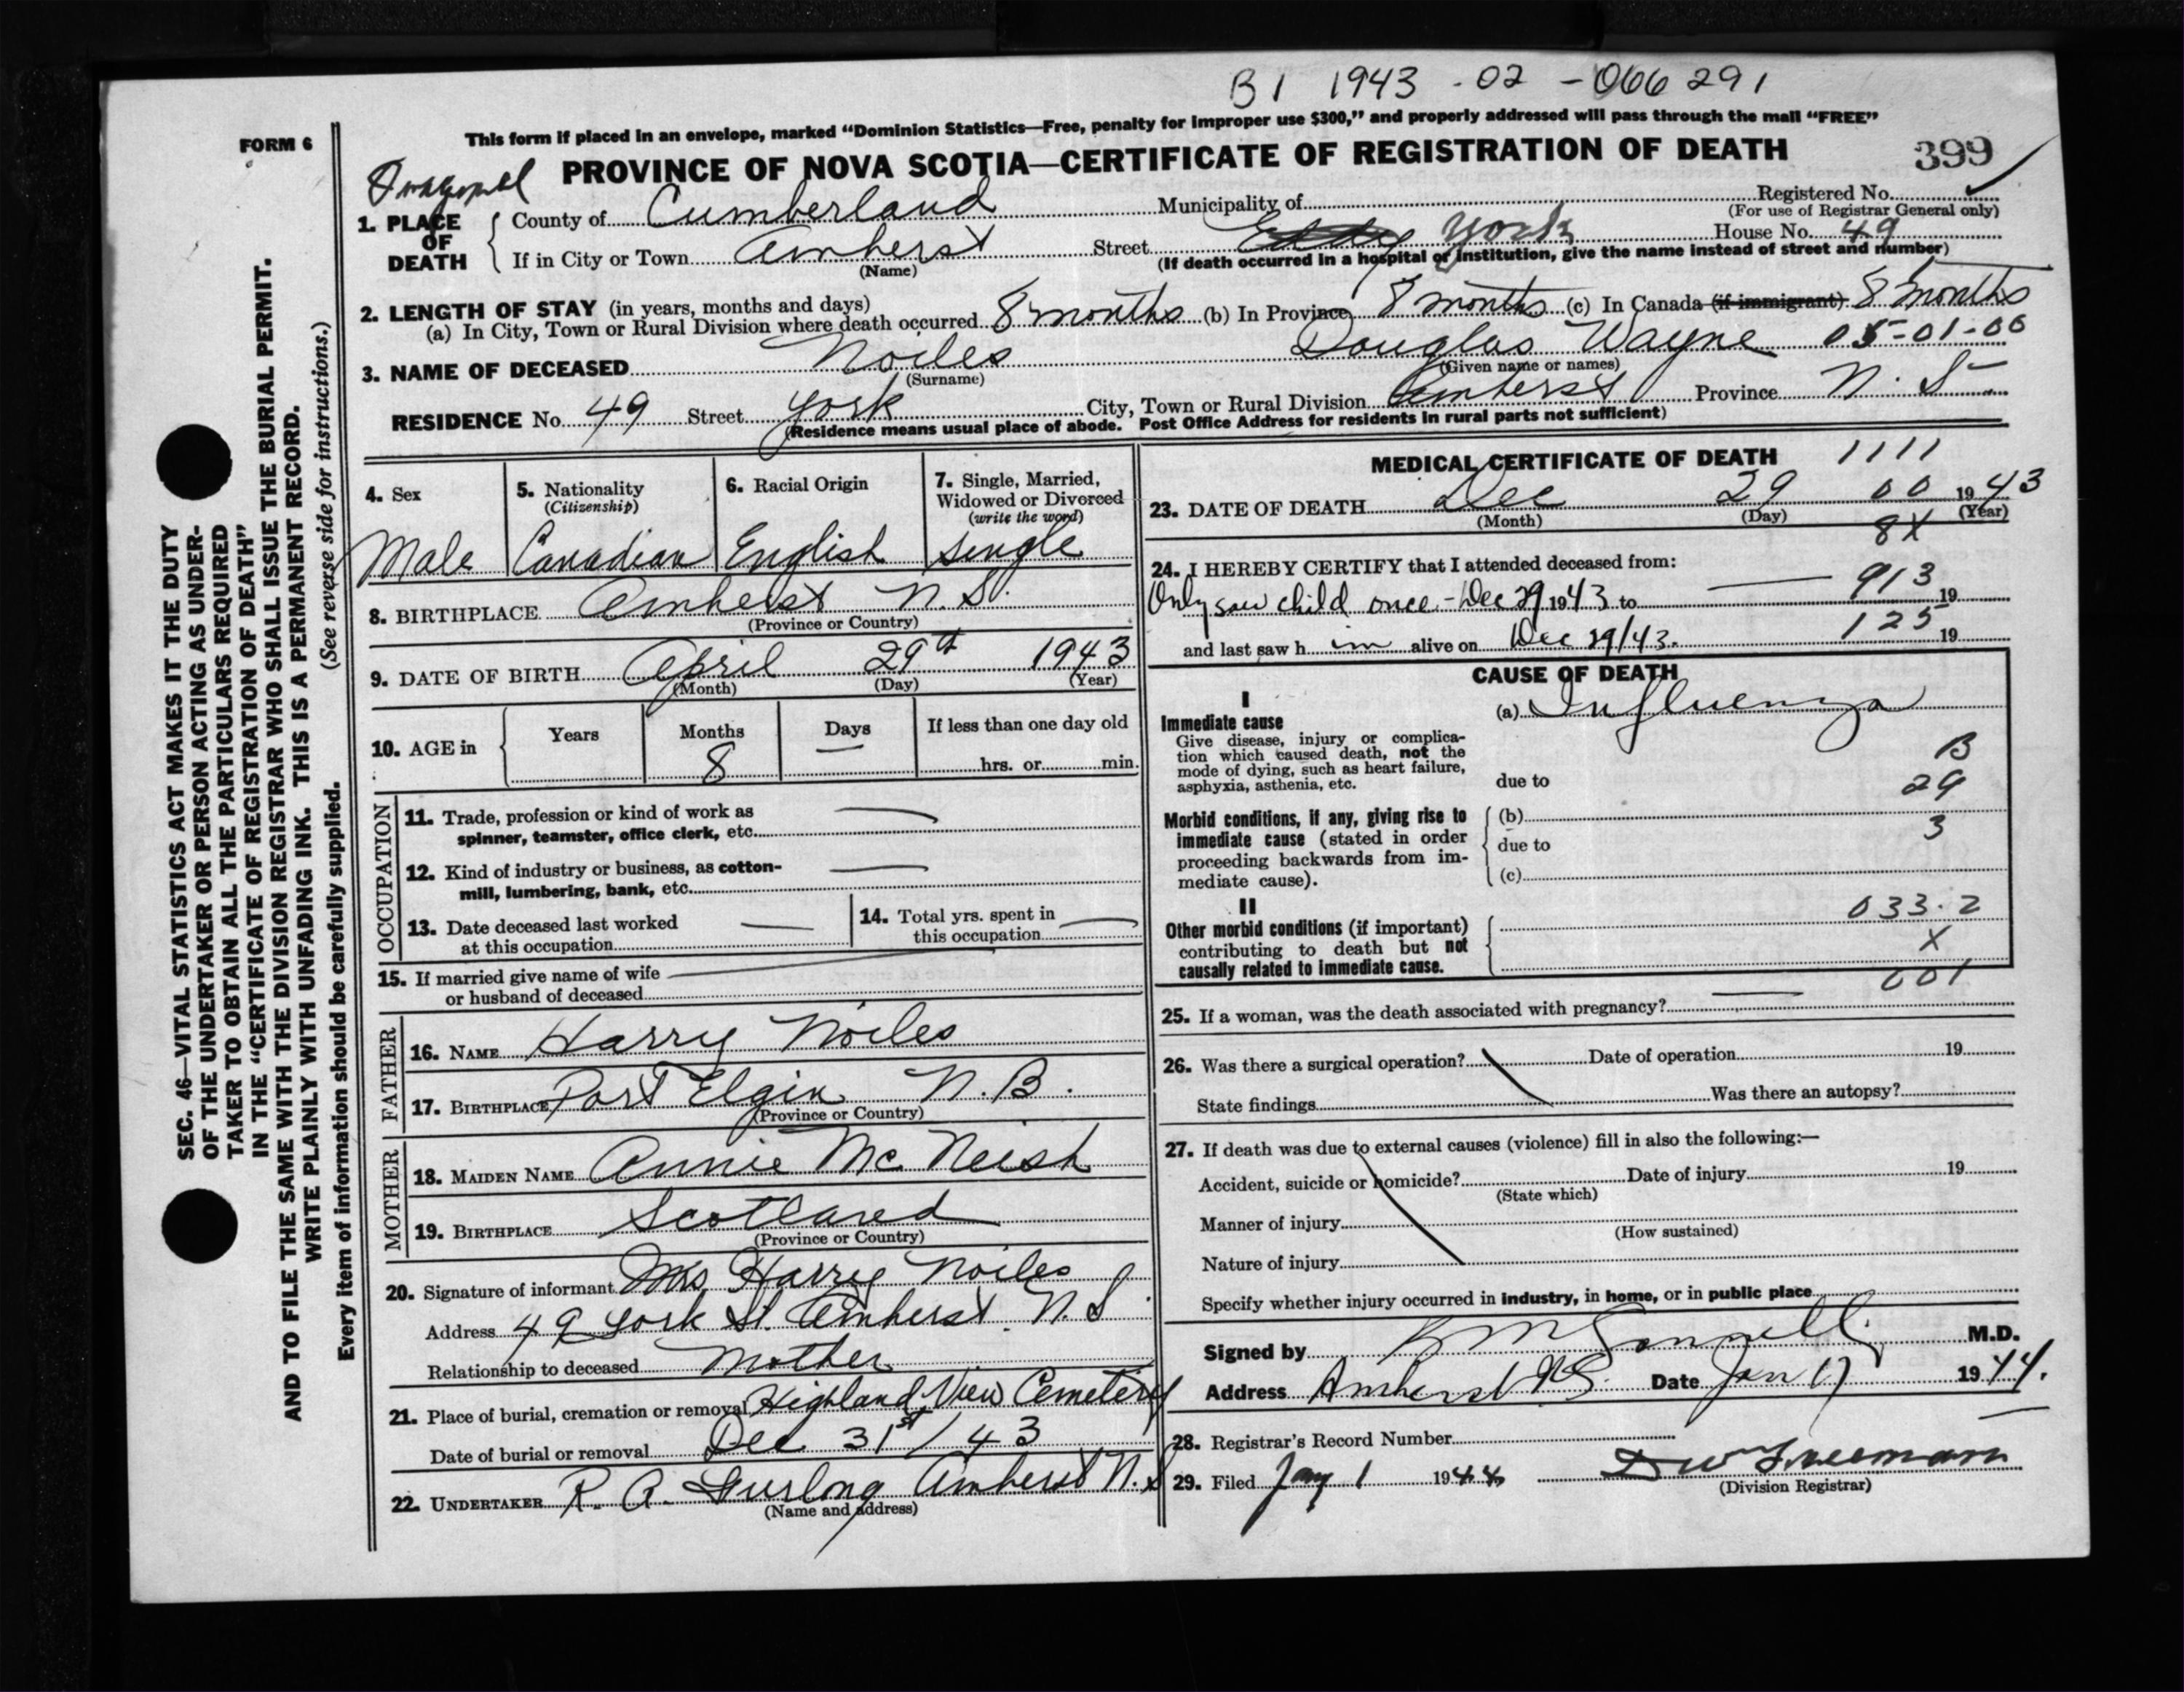 B1 1943 - 02 - 066291
This form if placed in an envelope, marked “Dominion Statistics—Free, penalty for improper use $300,” and properly addressed will pass through the mail “FREE”
FORM 6
PROVINCE OF NOVA SCOTIA—CERTIFICATE OF REGISTRATION OF DEATH 399
Registered No.
(For use of Registrar General only)
1. PLACE OF DEATH
County of Cumberland Municipality of
If in City or Town Amherst Street Eddy York House No. 49
(Name) (If death occurred in a hospital or institution, give the name instead of street and number)
2. LENGTH OF STAY (in years, months and days)
(a) In City, Town or Rural Division where death occurred 8 months (b) In Province 8 months (c) In Canada (if immigrant) 8 months
3. NAME OF DECEASED Noiles Douglas Wayne 05-01-00
(Surname) (Given name or names)
RESIDENCE No. 49 Street York City, Town or Rural Division Amherst Province N. S.
(Residence means usual place of abode. Post Office Address for residents in rural parts not sufficient)
4. Sex
Male
5. Nationality
(Citizenship)
Canadian
6. Racial Origin
English
7. Single, Married,
Widowed or Divorced
(write the word)
single
8. BIRTHPLACE Amherst N. S.
(Province or Country)
9. DATE OF BIRTH April 29th 1943
(Month) (Day) (Year)
10. AGE in
Years Months Days If less than one day old
8 — hrs. or min.
OCCUPATION
11. Trade, profession or kind of work as
spinner, teamster, office clerk, etc. —
12. Kind of industry or business, as cotton-
mill, lumbering, bank, etc. —
13. Date deceased last worked
at this occupation —
14. Total yrs. spent in
this occupation —
15. If married give name of wife
or husband of deceased —
FATHER
16. NAME Harry Noiles
17. BIRTHPLACE Port Elgin N. B.
(Province or Country)
MOTHER
18. MAIDEN NAME Annie Mc Neish
19. BIRTHPLACE Scotland
(Province or Country)
20. Signature of informant Mrs Harry Noiles
Address 49 York St. Amherst. N. S
Relationship to deceased Mother
21. Place of burial, cremation or removal Highland View Cemetery
Date of burial or removal Dec 31st / 43
22. UNDERTAKER R. A. Furlong Amherst N. S
(Name and address)
MEDICAL CERTIFICATE OF DEATH 1111
23. DATE OF DEATH Dec 29 00 1943
(Month) (Day) (Year)
8X
24. I HEREBY CERTIFY that I attended deceased from:
Only saw child once - Dec 29 1943 to — 913 19
and last saw h im alive on Dec 29/43. 125 19
CAUSE OF DEATH
I
Immediate cause
Give disease, injury or complica-
tion which caused death, not the
mode of dying, such as heart failure,
asphyxia, asthenia, etc.
(a) Influenza
B
due to 29
Morbid conditions, if any, giving rise to
immediate cause (stated in order
proceeding backwards from im-
mediate cause).
(b)
3
due to
(c)
II
Other morbid conditions (if important)
contributing to death but not
causally related to immediate cause.
033.2
X
001
25. If a woman, was the death associated with pregnancy? —
26. Was there a surgical operation? Date of operation 19
State findings Was there an autopsy?
27. If death was due to external causes (violence) fill in also the following:—
Accident, suicide or homicide? Date of injury 19
(State which)
Manner of injury
(How sustained)
Nature of injury
Specify whether injury occurred in industry, in home, or in public place
Signed by M.D.
Address Amherst N.S. Date Jan 17 1944.
28. Registrar's Record Number
29. Filed Jany 1 1944 D W Freeman
(Division Registrar)
SEC. 46—VITAL STATISTICS ACT MAKES IT THE DUTY
OF THE UNDERTAKER OR PERSON ACTING AS UNDER-
TAKER TO OBTAIN ALL THE PARTICULARS REQUIRED
IN THE “CERTIFICATE OF REGISTRATION OF DEATH”
AND TO FILE THE SAME WITH THE DIVISION REGISTRAR WHO SHALL ISSUE THE BURIAL PERMIT.
WRITE PLAINLY WITH UNFADING INK. THIS IS A PERMANENT RECORD.
Every item of information should be carefully supplied. (See reverse side for instructions.)